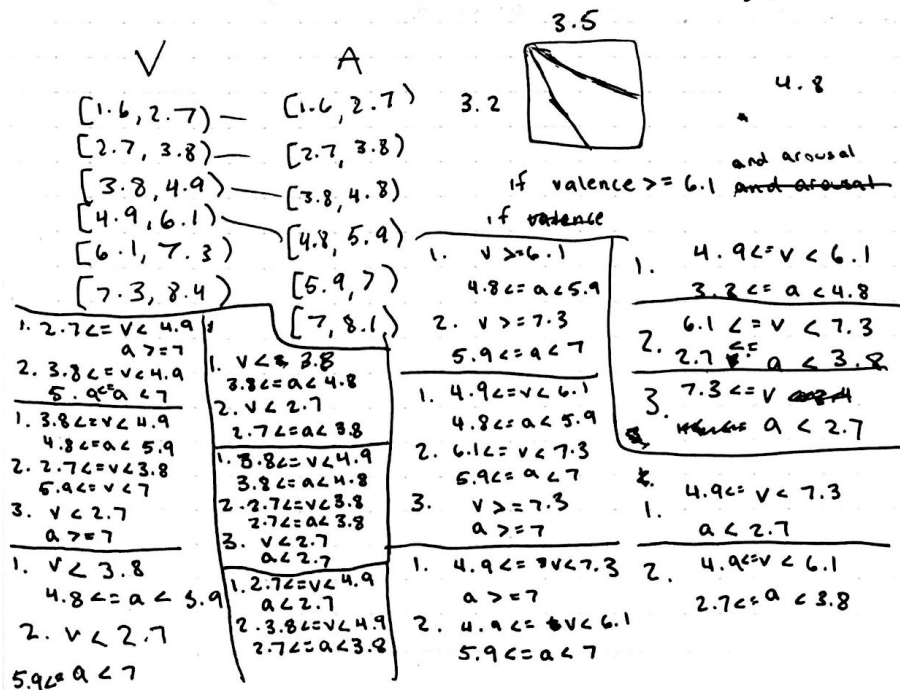 3.5
V A
[1.6, 2.7) [1.6, 2.7)
3.2
4.8
[2.7, 3.8) [2.7, 3.8)
[3.8, 4.9) [3.8, 4.8)
and arousal
if valence >= 6.1 and arousal
[4.9, 6.1) [4.8, 5.9)
if valence
[6.1, 7.3) [5.9, 7)
[7.3, 8.4) [7, 8.1)
1. 2.7<=v<4.9
a>=7
2. 3.8<=v<4.9
5.9<=a<7
1. 3.8<=v<4.9
4.8<=a<5.9
2. 2.7<=v<3.8
5.9<=v<7
3. v<2.7
a>=7
1. v<3.8
4.8<=a<5.9
2. v<2.7
5.9<=a<7
1. v<3.8
3.8<=a<4.8
2. v<2.7
2.7<=a<3.8
1. 3.8<=v<4.9
3.8<=a<4.8
2. 2.7<=v<3.8
2.7<=a<3.8
3. v<2.7
a<2.7
1. 2.7<=v<4.9
a<2.7
2. 3.8<=v<4.9
2.7<=a<3.8
1. v>=6.1
4.8<=a<5.9
2. v>=7.3
5.9<=a<7
1. 4.9<=v<6.1
4.8<=a<5.9
2. 6.1<=v<7.3
5.9<=a<7
3. v>=7.3
a>=7
1. 4.9<=v<7.3
a>=7
2. 4.9<=v<6.1
5.9<=a<7
1. 4.9<=v<6.1
3.8<=a<4.8
2. 6.1<=v<7.3
2.7<=a<3.8
3. 7.3<=v
a<2.7
1. 4.9<=v<7.3
a<2.7
2. 4.9<=v<6.1
2.7<=a<3.8